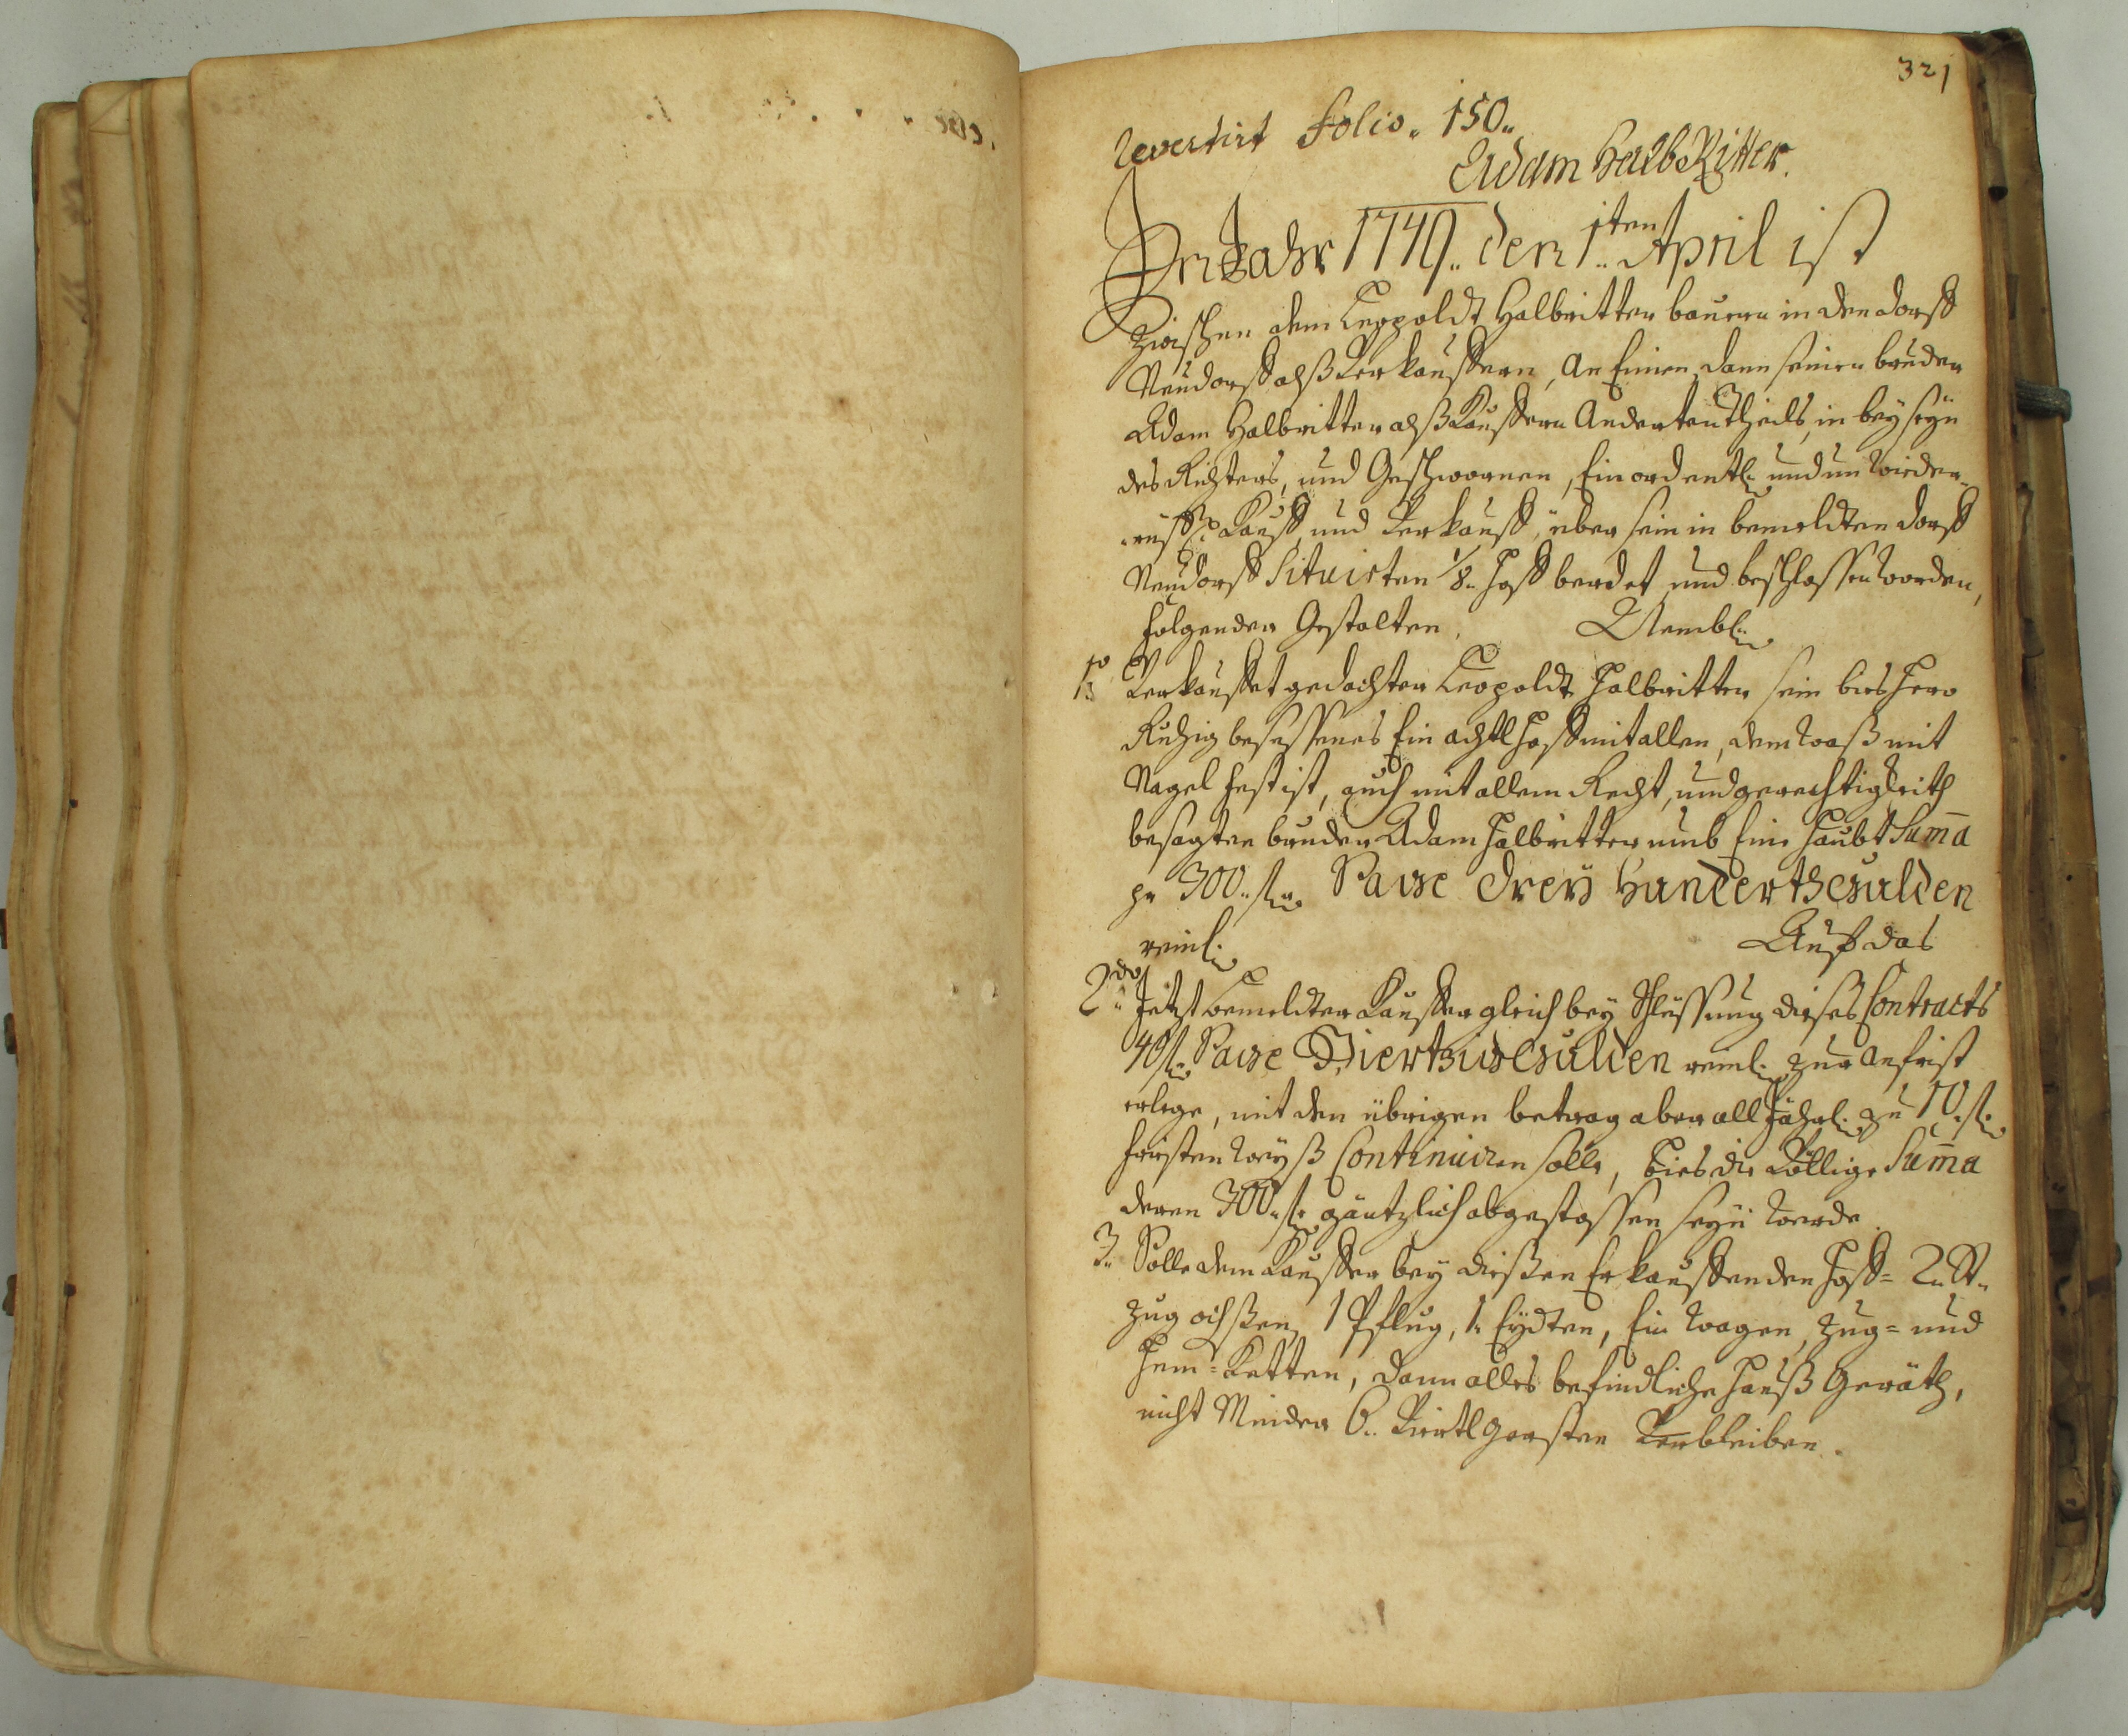 321
revertirt Folio. 150..
Adam HalbRitter.
Im Jahr 1749.. den 1.ten April ist
zwischen dem Leopoldt Halbritter bauern in den dorff
Neudorff alß Verkauffern, An Einen, dann seinen bruder
Adam Halbritter alß Kauffern Anderten Theils, in beyseyn
des Richters, und Geschwornen, Ein ordentl. und unwieder-
-rufl. Kauff, und Verkauff, über sein in bemeldten dorff
Neudorff Situirten 1/8.. Hoff beredet und beschlossen worden,
folgender Gestalten, Nembl.
1mo Verkauffet gedachter Leopoldt Halbritter sein bishero
Ruhig besessenes Ein achtl Hoff mit allen, dem waß mit
Nagel fest ist, auch mit allem Recht, und gerechtigkeith
besagten bruder Adam Halbritter umb Eine Haubt Summa
pr 300.. fl. Sage Dreÿ Hundert Gulden
reinl. Auf das
2do Jetzt bemeldter Kauffer gleich bey Schlüssung dieses Contracts
40 fl. Sage Viertzig Gulden reinl. zur Anfrist
erlege, mit den übrigen betrag aber all Jährl. zu 10. fl.
fristen weyß Continuiren solle, bies die Völlige Summa
deren 300.. fl. gäntzlich abgestossen seyn werde.
3.. Solle dem Kauffer bey diesen Erkauffenden Hoff= 2. St.
Zug ochßen, 1 Pflug, 1. Eydten, Ein wagen, Zug= und
Hem=Ketten, dann alles befindliche Hauß Geräth,
nicht Minder 6.. Viertl gersten Verbleiben.